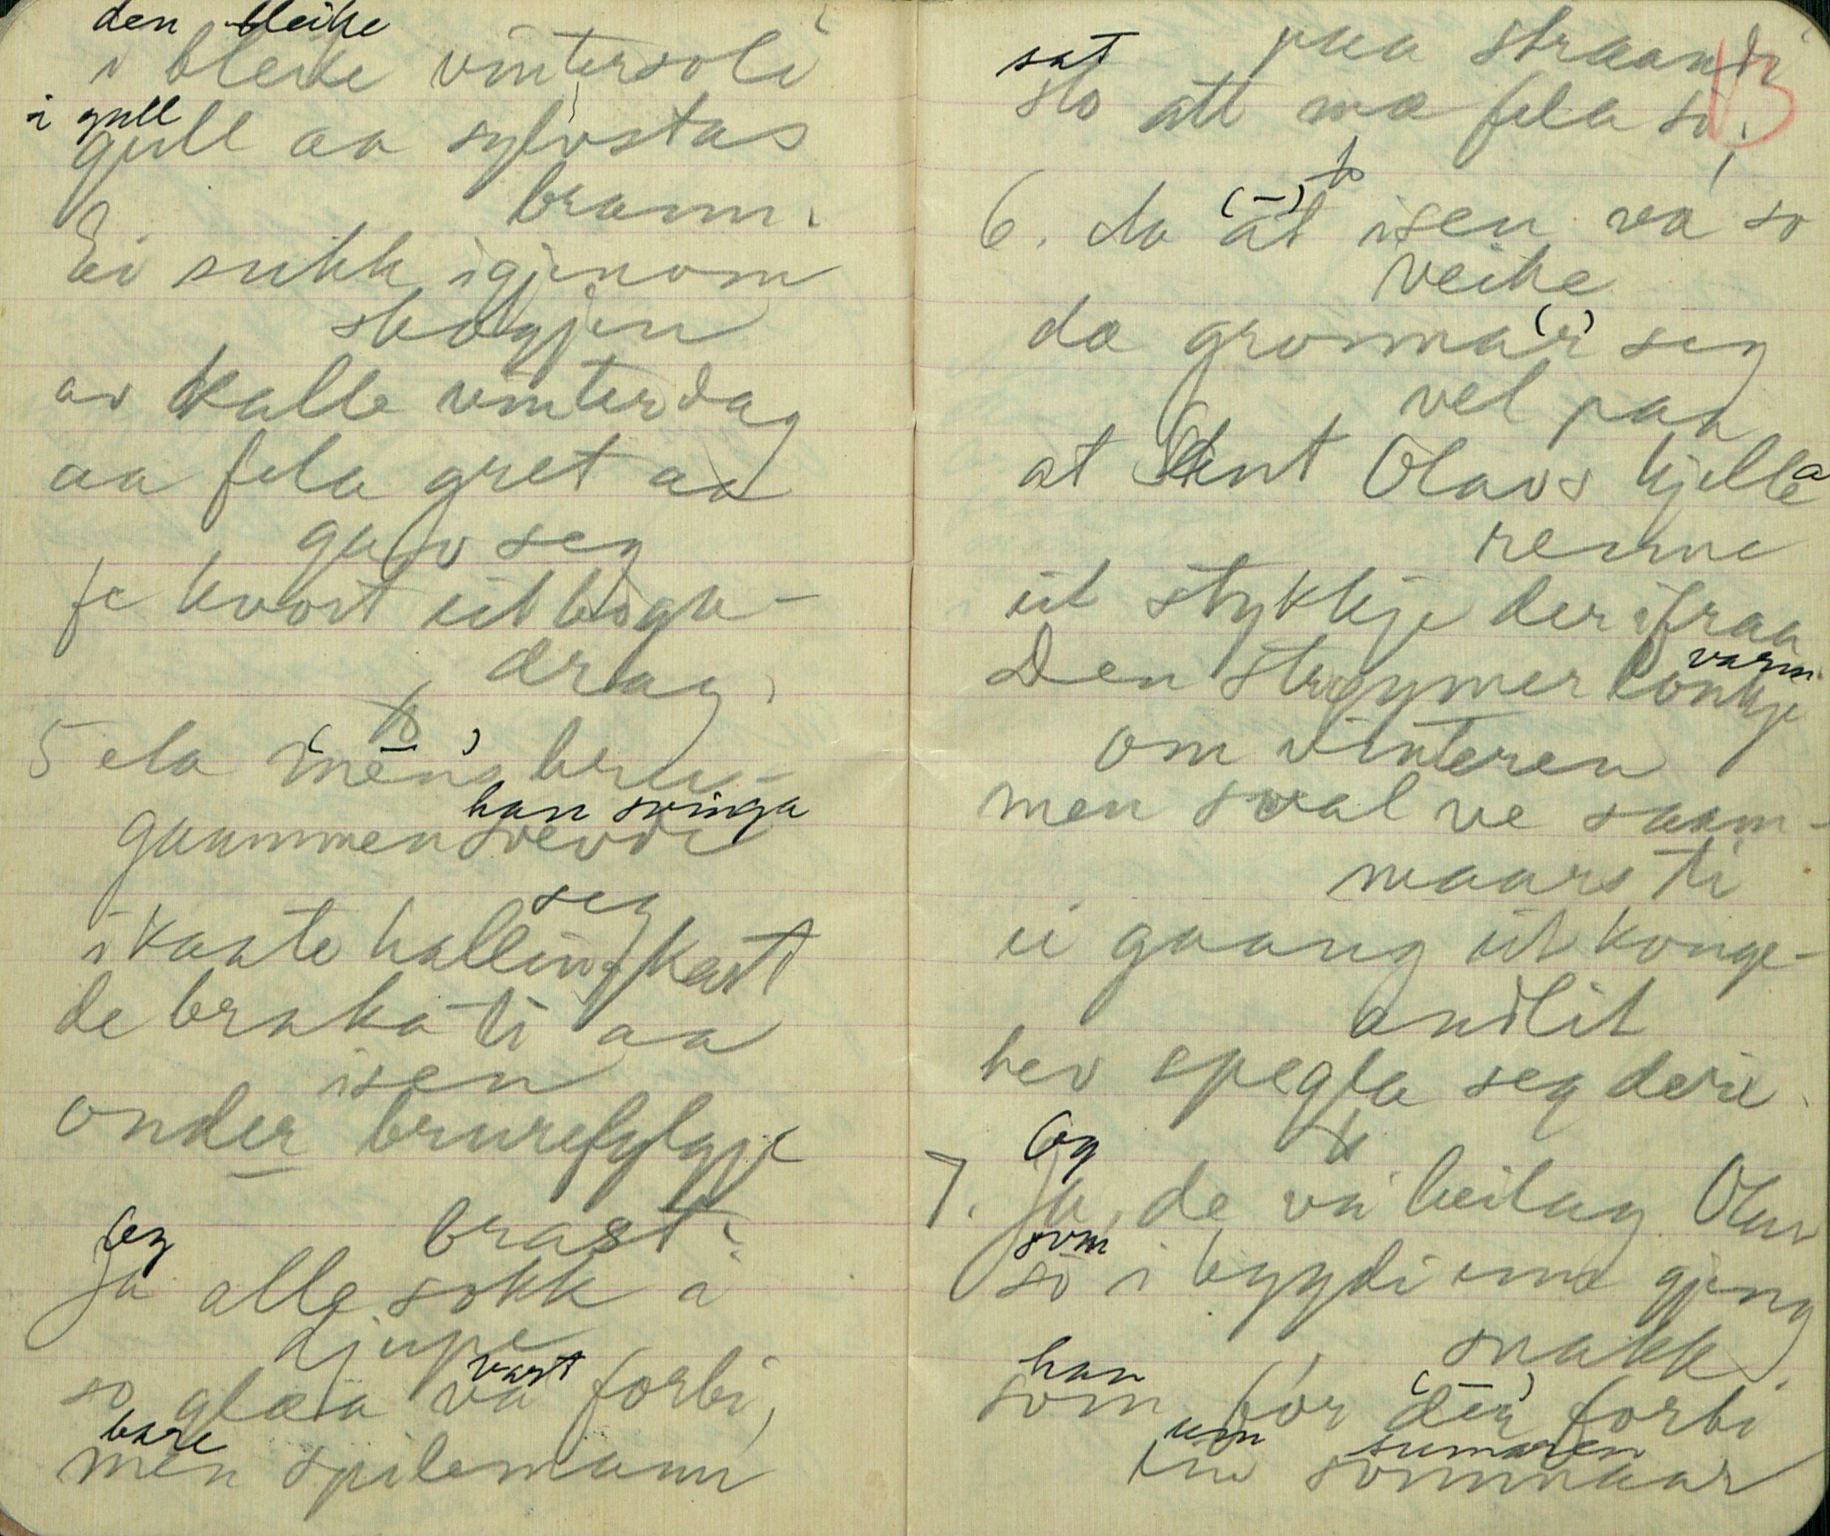 den bleike
i bleike vintersoli
i gull
gull aa sylvstas
brann.
Ei sukk igjenom
skogjen
av kalle vinterdag
aa fela gret aa
gav seg
fe kvort eit boga-
drag,
5 ela mens bru-
han svinga
gaummen svevde
seg
i kaate hallingkast
de braka ti aa
isen
onder brurefylgje
brast.
og
Ja alle sokk i
djupe
vart
so glæa va forbi,
bare
men spilemann
paa straandi
13
sat
slo att mæ fela si,
6. da (at) isen va so
veike
dæ gronna(r) seg
vel paa
at Sant Olavs kjella
renne
eit stykkje der ifraa
varm
Den strøymer lonkje
om vinteren
men sval ve saam-
maars ti
ei gaang eit konge-
andlit
hev spegla seg deri.
Og
7. Ja, de va heilag Olav
som
so i bygdi inn gjeng
snakk.
han
som for der forbi
um sumaren
ein sommaar